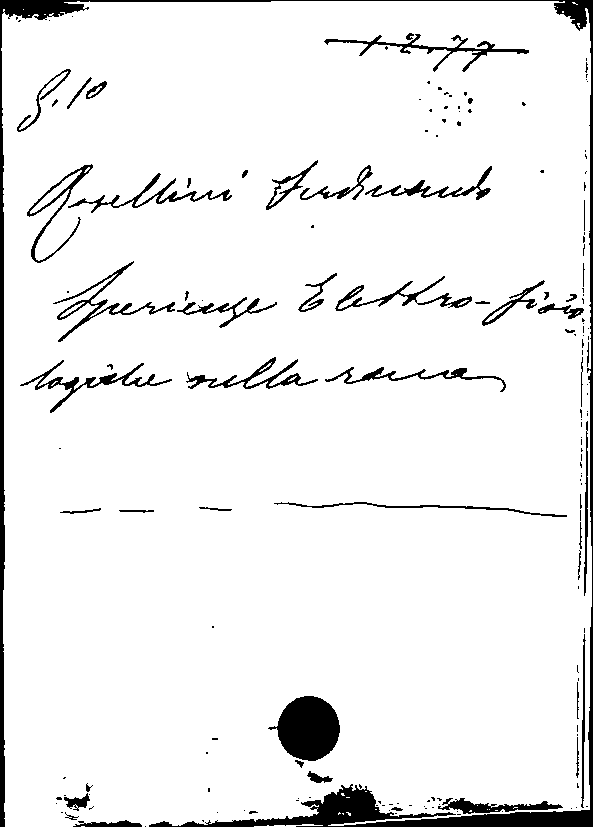 1.2.77
G.10
Rosellini Ferdinando
Sperienze Elettro-fisio
logiche sulla rana